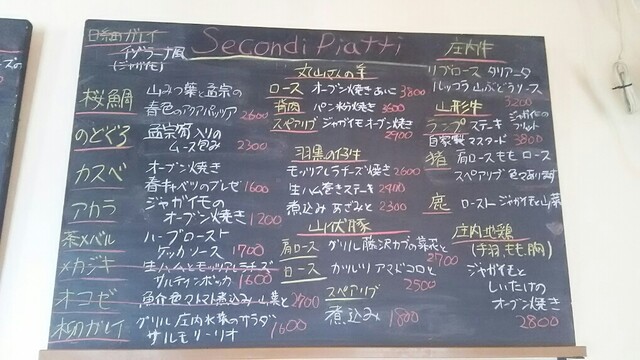 Secondi Piatti
イゾラーナ風
(ジャガイモ)
桜鯛
山みつ葉と孟宗の
春色のアクアパッツァ 2600
のどぐろ
孟宗筍入りの
ムース包み 2300
カスベ
オーブン焼き
春キャベツのブレゼ 1600
アカラ
ジャガイモの
オーブン焼き 1200
茶メバル
ハーブロースト
ケッカソース 1700
メカジキ
生ハムとモッツァレラチーズ
サルティンボッカ 1600
オコゼ
魚介色トマト煮込み 山菜と 2400
柳ガレイ
グリル 庄内水菜のサラダ
サルモリーリオ 1600
丸山さんの羊
ロース オーブン焼き あいこ 3800
背肉 パン粉焼き 3600
スペアリブ ジャガイモオーブン焼き
2900
羽黒の仔牛
モッツァレラチーズ焼き 2600
生ハム巻きステーキ 2400
煮込み あざみと 2300
山伏豚
肩ロース グリル 藤沢カブの
2700
ロース カツレツ アマドコロと
2500
スペアリブ
煮込み 1800
庄内牛
リブロース タリアータ
ルッコラ 山ぶどうソース
3200
山形牛
ランプ ステーキ
ジャガイモの
フリット
自家製 マスタード 3800
猪 肩ロース もも ロース
スペアリブ 色々あります
鹿 ロースト ジャガイモと山菜
庄内地鶏
(手羽、もも、胸)
ジャガイモと
しいたけの
オーブン焼き
2800